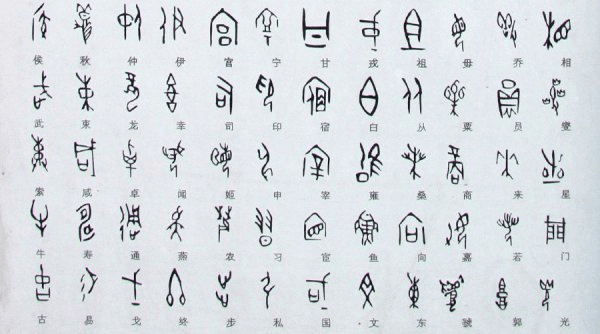 侯 秋 仲 伊 宫 宁 甘 戎 祖 毋 乔 相
武 束 龙 幸 司 印 宿 白 从 粟 员 燮
索 咸 卓 闻 姬 申 宰 雍 桑 商 来 星
牛 寿 通 燕 农 习 宦 鱼 向 嘉 若 门
古 易 戈 终 步 私 国 文 东 虢 郭 光